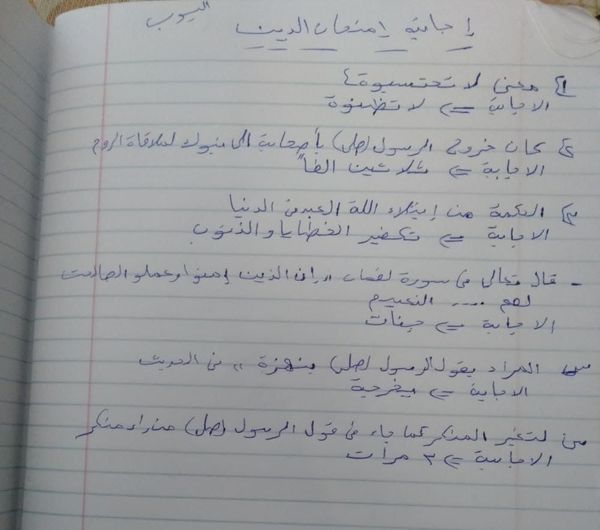 اليوب
إجابة إمتحان الدين
1) معنى لا تحتسبوة؟
الاجابة => لا تظنوة
2) كان خروج الرسول (صل) بأصحابة الى تبوك لملاقاة الروم
الاجابة => ثلاثين الفاً
3) الحكمة من إبتلاء اللة العبد فى الدنيا
الاجابة => تكفير الخطايا والذنوب
- قال تعالى فى سورة لقمان " إن الذين إمنوا وعملو الصالحت
لهم .... النعييم
الاجابة => جنات
س المراد بقول الرسول (صل) ينهزة " فى الحديث
الاجابة => يخرجة
س لتغير المنكر كما جاء فى قول الرسول (صل) من راء منكر
الاجابة => ٣ مرات